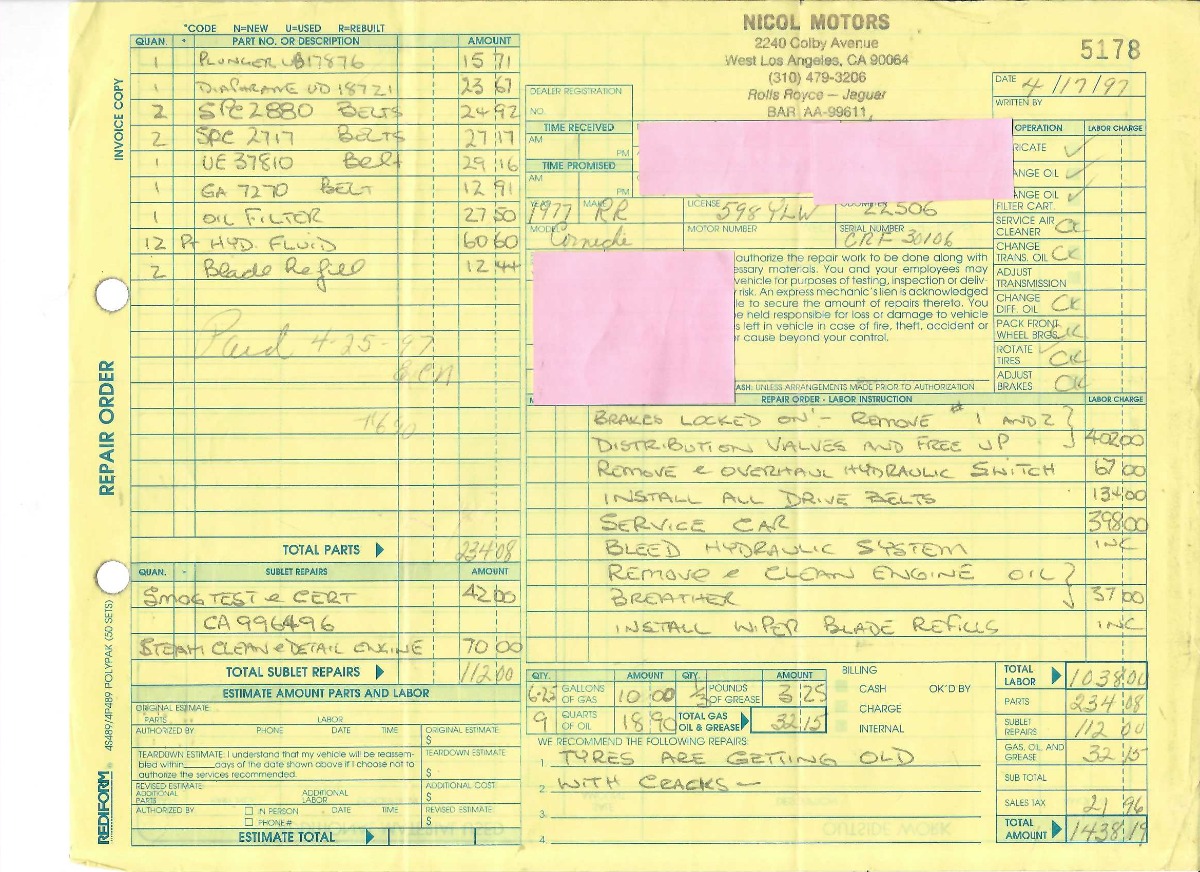 NICOL MOTORS
2240 Colby Avenue
West Los Angeles, CA 90064
(310) 479-3206
Rolls Royce — Jaguar
BAR AA-99611
5178
DATE 4/17/97
WRITTEN BY
INVOICE COPY
REPAIR ORDER
REDIFORM 4S489/4P489 POLYPAK (50 SETS)
*CODE N=NEW U=USED R=REBUILT
QUAN. * PART NO. OR DESCRIPTION AMOUNT
1 PLUNGER UB17876 15 71
1 DIAPHRAME UD 18721 23 67
2 SPC 2880 BELTS 24 92
2 SPC 2717 BELTS 27 17
1 UE 37810 Belt 29 16
1 GA 7270 BELT 12 91
1 OIL FILTER 27 50
12 Pt HYD. FLUID 60 60
2 Blade Refill 12 44
Paid 4-25-97
TOTAL PARTS 234 08
QUAN. SUBLET REPAIRS AMOUNT
SMOG TEST & CERT 42 00
CA 996496
STEAM CLEAN & DETAIL ENGINE 70 00
TOTAL SUBLET REPAIRS 112 00
ESTIMATE AMOUNT PARTS AND LABOR
ORIGINAL ESTIMATE
PARTS LABOR
AUTHORIZED BY PHONE DATE TIME ORIGINAL ESTIMATE
$
TEARDOWN ESTIMATE: I understand that my vehicle will be reassem-
bled within ____ days of the date shown above if I choose not to
authorize the services recommended.
TEARDOWN ESTIMATE
$
REVISED ESTIMATE
ADDITIONAL PARTS ADDITIONAL LABOR
ADDITIONAL COST
$
AUTHORIZED BY IN PERSON DATE TIME REVISED ESTIMATE
PHONE# $
ESTIMATE TOTAL
DEALER REGISTRATION
NO.
TIME RECEIVED
AM
PM
TIME PROMISED
AM
PM
YEAR 1977 MAKE RR LICENSE 598 YLW 22506
MODEL Corniche MOTOR NUMBER SERIAL NUMBER CRF 30106
authorize the repair work to be done along with
essary materials. You and your employees may
vehicle for purposes of testing, inspection or deliv-
risk. An express mechanic's lien is acknowledged
le to secure the amount of repairs thereto. You
be held responsible for loss or damage to vehicle
s left in vehicle in case of fire, theft, accident or
r cause beyond your control.
ASH: UNLESS ARRANGEMENTS MADE PRIOR TO AUTHORIZATION
OPERATION LABOR CHARGE
RICATE
ANGE OIL
ANGE OIL
FILTER CART.
SERVICE AIR
CLEANER CK
CHANGE
TRANS. OIL CK
ADJUST
TRANSMISSION
CHANGE
DIFF. OIL CK
PACK FRONT
WHEEL BRGS.
ROTATE
TIRES CK
ADJUST
BRAKES OK
REPAIR ORDER - LABOR INSTRUCTION LABOR CHARGE
BRAKES LOCKED ON - REMOVE # 1 AND 2
DISTRIBUTION VALVES AND FREE UP 402 00
REMOVE & OVERHAUL HYDRAULIC SWITCH 67 00
INSTALL ALL DRIVE BELTS 134 00
SERVICE CAR 398 00
BLEED HYDRAULIC SYSTEM INC
REMOVE & CLEAN ENGINE OIL
BREATHER 37 00
INSTALL WIPER BLADE REFILLS INC
QTY. AMOUNT QTY. AMOUNT
6.25 GALLONS OF GAS 10 00 1/3 POUNDS OF GREASE 3 25
9 QUARTS OF OIL 18 90 TOTAL GAS OIL & GREASE 32 15
BILLING
CASH OK'D BY
CHARGE
INTERNAL
WE RECOMMEND THE FOLLOWING REPAIRS
1 TYRES ARE GETTING OLD
2. WITH CRACKS —
3.
4.
TOTAL LABOR 1038 00
PARTS 234 08
SUBLET REPAIRS 112 00
GAS, OIL AND GREASE 32 15
SUB TOTAL
SALES TAX 21 96
TOTAL AMOUNT 1438 19